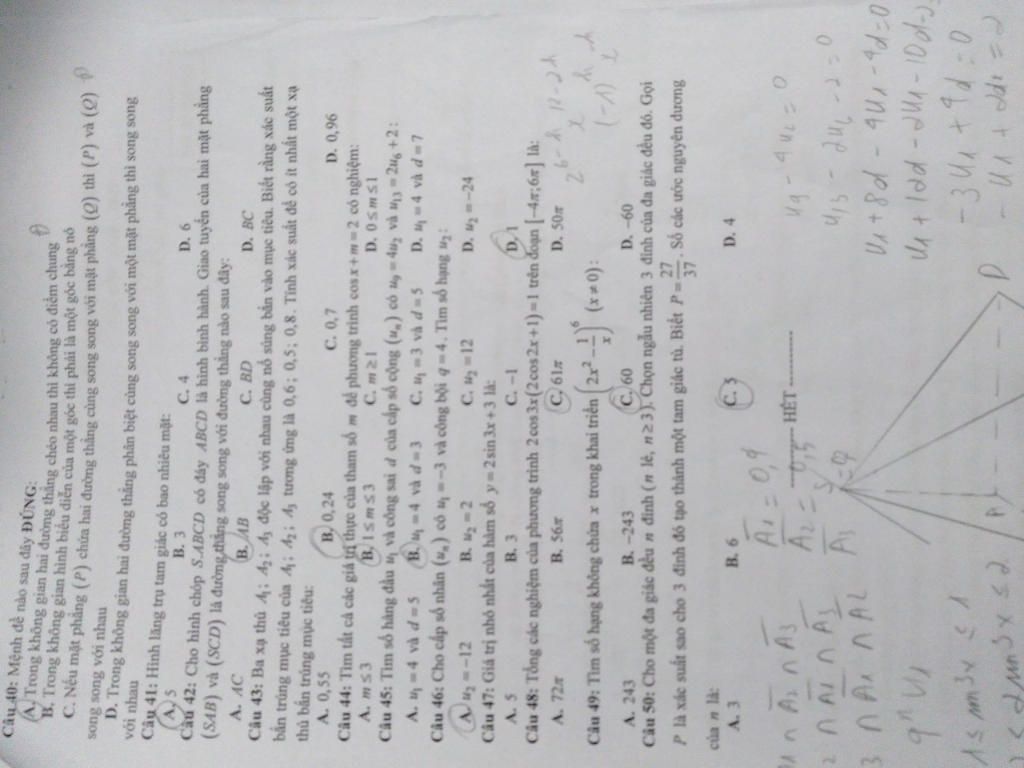 Câu 40: Mệnh đề nào sau đây ĐÚNG:
A. Trong không gian hai đường thẳng chéo nhau thì không có điểm chung
B. Trong không gian hình biểu diễn của một góc thì phải là một góc bằng nó
C. Nếu mặt phẳng (P) chứa hai đường thẳng cùng song song với mặt phẳng (Q) thì (P) và (Q)
song song với nhau
D. Trong không gian hai đường thẳng phân biệt cùng song song với một mặt phẳng thì song song
với nhau
Câu 41: Hình lăng trụ tam giác có bao nhiêu mặt:
A. 5 B. 3 C. 4 D. 6
Câu 42: Cho hình chóp S.ABCD có đáy ABCD là hình bình hành. Giao tuyến của hai mặt phẳng
(SAB) và (SCD) là đường thẳng song song với đường thẳng nào sau đây:
A. AC B. AB C. BD D. BC
Câu 43: Ba xạ thủ A₁; A₂; A₃ độc lập với nhau cùng nổ súng bắn vào mục tiêu. Biết rằng xác suất
bắn trúng mục tiêu của A₁; A₂; A₃ tương ứng là 0,6; 0,5; 0,8. Tính xác suất để có ít nhất một xạ
thủ bắn trúng mục tiêu:
A. 0,55 B. 0,24 C. 0,7 D. 0,96
Câu 44: Tìm tất cả các giá trị thực của tham số m để phương trình cos x + m = 2 có nghiệm:
A. m ≤ 3 B. 1 ≤ m ≤ 3 C. m ≥ 1 D. 0 ≤ m ≤ 1
Câu 45: Tìm số hạng đầu u₁ và công sai d của cấp số cộng (uₙ) có u₉ = 4u₂ và u₁₃ = 2u₆ + 2:
A. u₁ = 4 và d = 5 B. u₁ = 4 và d = 3 C. u₁ = 3 và d = 5 D. u₁ = 4 và d = 7
Câu 46: Cho cấp số nhân (uₙ) có u₁ = −3 và công bội q = 4. Tìm số hạng u₂:
A. u₂ = −12 B. u₂ = 2 C. u₂ = 12 D. u₂ = −24
Câu 47: Giá trị nhỏ nhất của hàm số y = 2 sin 3x + 3 là:
A. 5 B. 3 C. −1 D. 1
Câu 48: Tổng các nghiệm của phương trình 2 cos 3x(2 cos 2x + 1) = 1 trên đoạn [−4π; 6π] là:
A. 72π B. 56π C. 61π D. 50π
Câu 49: Tìm số hạng không chứa x trong khai triển (2x² − 1/x)⁶ (x ≠ 0):
A. 243 B. −243 C. 60 D. −60
Câu 50: Cho một đa giác đều n đỉnh (n lẻ, n ≥ 3). Chọn ngẫu nhiên 3 đỉnh của đa giác đều đó. Gọi
P là xác suất sao cho 3 đỉnh đó tạo thành một tam giác tù. Biết P = 27/37. Số các ước nguyên dương
của n là:
A. 3 B. 6 C. 5 D. 4
HẾT
u9 − 4u2 = 0
u13 − 2u6 − 2 = 0
u1 + 8d − 4u1 − 4d = 0
u1 + 12d − 2u1 − 10d − 2
−3u1 + 4d = 0
−u1 + 2d = 2